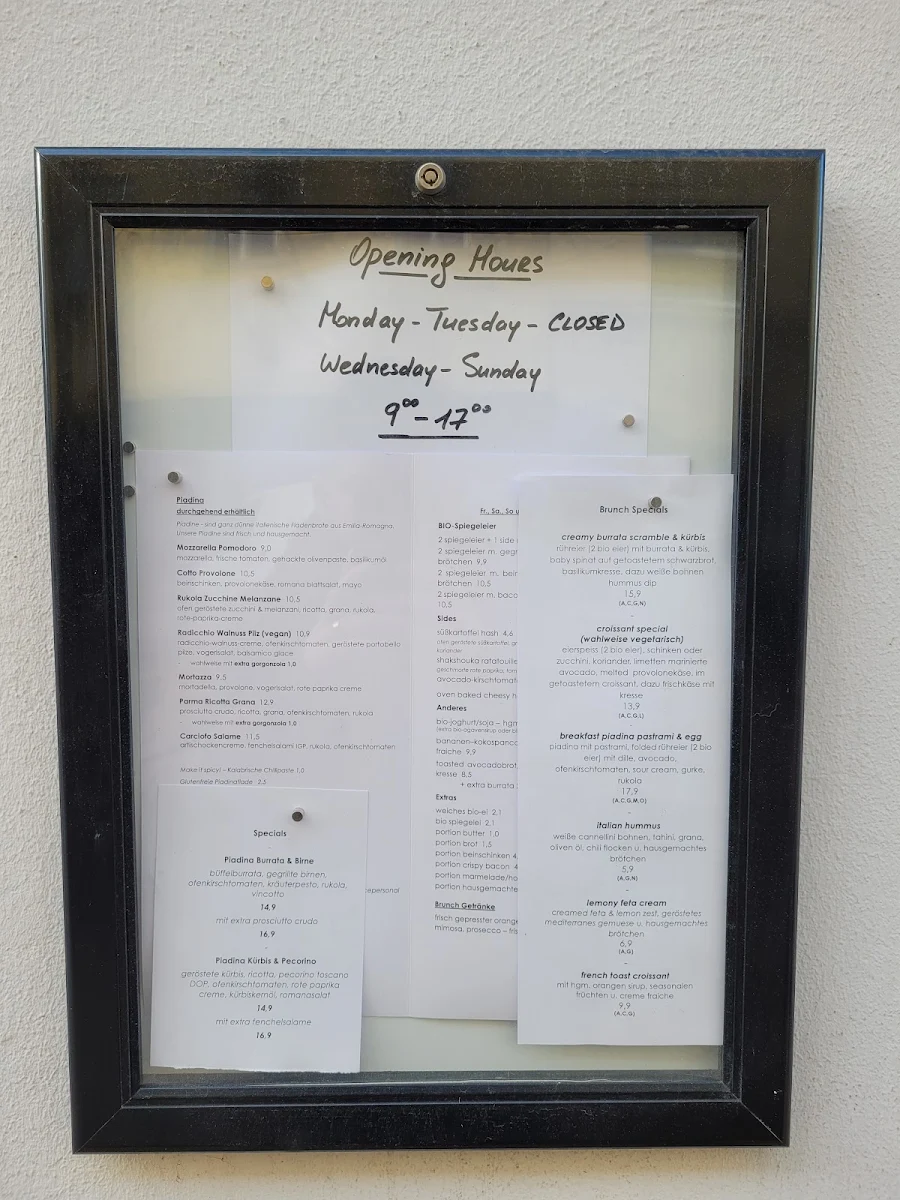 Opening Hours
Monday - Tuesday - CLOSED
Wednesday - Sunday
9⁰⁰ - 17⁰⁰
Piadina
durchgehend erhältlich
Piadine - sind ganz dünne italienische Fladenbrote aus Emilia-Romagna.
Unsere Piadine sind frisch und hausgemacht.
Mozzarella Pomodoro 9,0
mozzarella, frische tomaten, gehackte olivenpaste, basilikumöl
Cotto Provolone 10,5
beinschinken, provolonekäse, romana blattsalat, mayo
Rukola Zucchine Melanzane 10,5
ofen geröstete zucchini & melanzani, ricotta, grana, rukola,
rote-paprika-creme
Radicchio Walnuss Pilz (vegan) 10,9
radicchio-walnuss-creme, ofenkirschtomaten, geröstete portobello
pilze, vogerlsalat, balsamico glace
- wahlweise mit extra gorgonzola 1,0
Mortazza 9,5
mortadella, provolone, vogerlsalat, rote paprika creme
Parma Ricotta Grana 12,9
prosciutto crudo, ricotta, grana, ofenkirschtomaten, rukola
- wahlweise mit extra gorgonzola 1,0
Carciofo Salame 11,5
artischockencreme, fenchelsalami IGP, rukola, ofenkirschtomaten
Make it spicy! – Kalabrische Chilipaste 1,0
Glutenfreie Piadinaflade 2,5
Specials
Piadina Burrata & Birne
büffelburrata, gegrillte birnen,
ofenkirschtomaten, kräuterpesto, rukola,
vincotto
14,9
mit extra prosciutto crudo
16,9
-
Piadina Kürbis & Pecorino
geröstete kürbis, ricotta, pecorino toscano
DOP, ofenkirschtomaten, rote paprika
creme, kürbiskernöl, romanasalat
14,9
mit extra fenchelsalame
16,9
epersonal
Fr., Sa., So u
BIO-Spiegeleier
2 spiegeleier + 1 side
2 spiegeleier m. gegr
brötchen 9,9
2 spiegeleier m. bein
brötchen 10,5
2 spiegeleier m. baco
10,5
Sides
süßkartoffel hash 4,6
ofen geröstete süßkartoffel, gr
koriander
shakshouka ratatouille
geschmorte rote paprika, tom
avocado-kirschtomat
oven baked cheesy h
Anderes
bio-joghurt/soja – hgm
(extra bio-agavensirup oder bi
bananen-kokospanc
fraiche 9,9
toasted avocadobrot,
kresse 8,5
+ extra burrata
Extras
weiches bio-ei 2,1
bio spiegelei 2,1
portion butter 1,0
portion brot 1,5
portion beinschinken 4,
portion crispy bacon 4
portion marmelade/ho
portion hausgemachte
Brunch Getränke
frisch gepresster orange
mimosa, prosecco – fris
Brunch Specials
creamy burrata scramble & kürbis
rühreier (2 bio eier) mit burrata & kürbis,
baby spinat auf getoastetem schwarzbrot,
basilikumkresse, dazu weiße bohnen
hummus dip
15,9
(A,C,G,N)
-
croissant special
(wahlweise vegetarisch)
eierspeiss (2 bio eier), schinken oder
zucchini, koriander, limetten marinierte
avocado, melted provolonekäse, im
getoastetem croissant, dazu frischkäse mit
kresse
13,9
(A,C,G,L)
-
breakfast piadina pastrami & egg
piadina mit pastrami, folded rühreier (2 bio
eier) mit dille, avocado,
ofenkirschtomaten, sour cream, gurke,
rukola
17,9
(A,C,G,M,O)
-
italian hummus
weiße cannellini bohnen, tahini, grana,
oliven öl, chili flocken u. hausgemachtes
brötchen
5,9
(A,G,N)
-
lemony feta cream
creamed feta & lemon zest, geröstetes
mediterranes gemuese u. hausgemachtes
brötchen
6,9
(A,G)
-
french toast croissant
mit hgm. orangen sirup, seasonalen
früchten u. creme fraiche
9,9
(A,C,G)